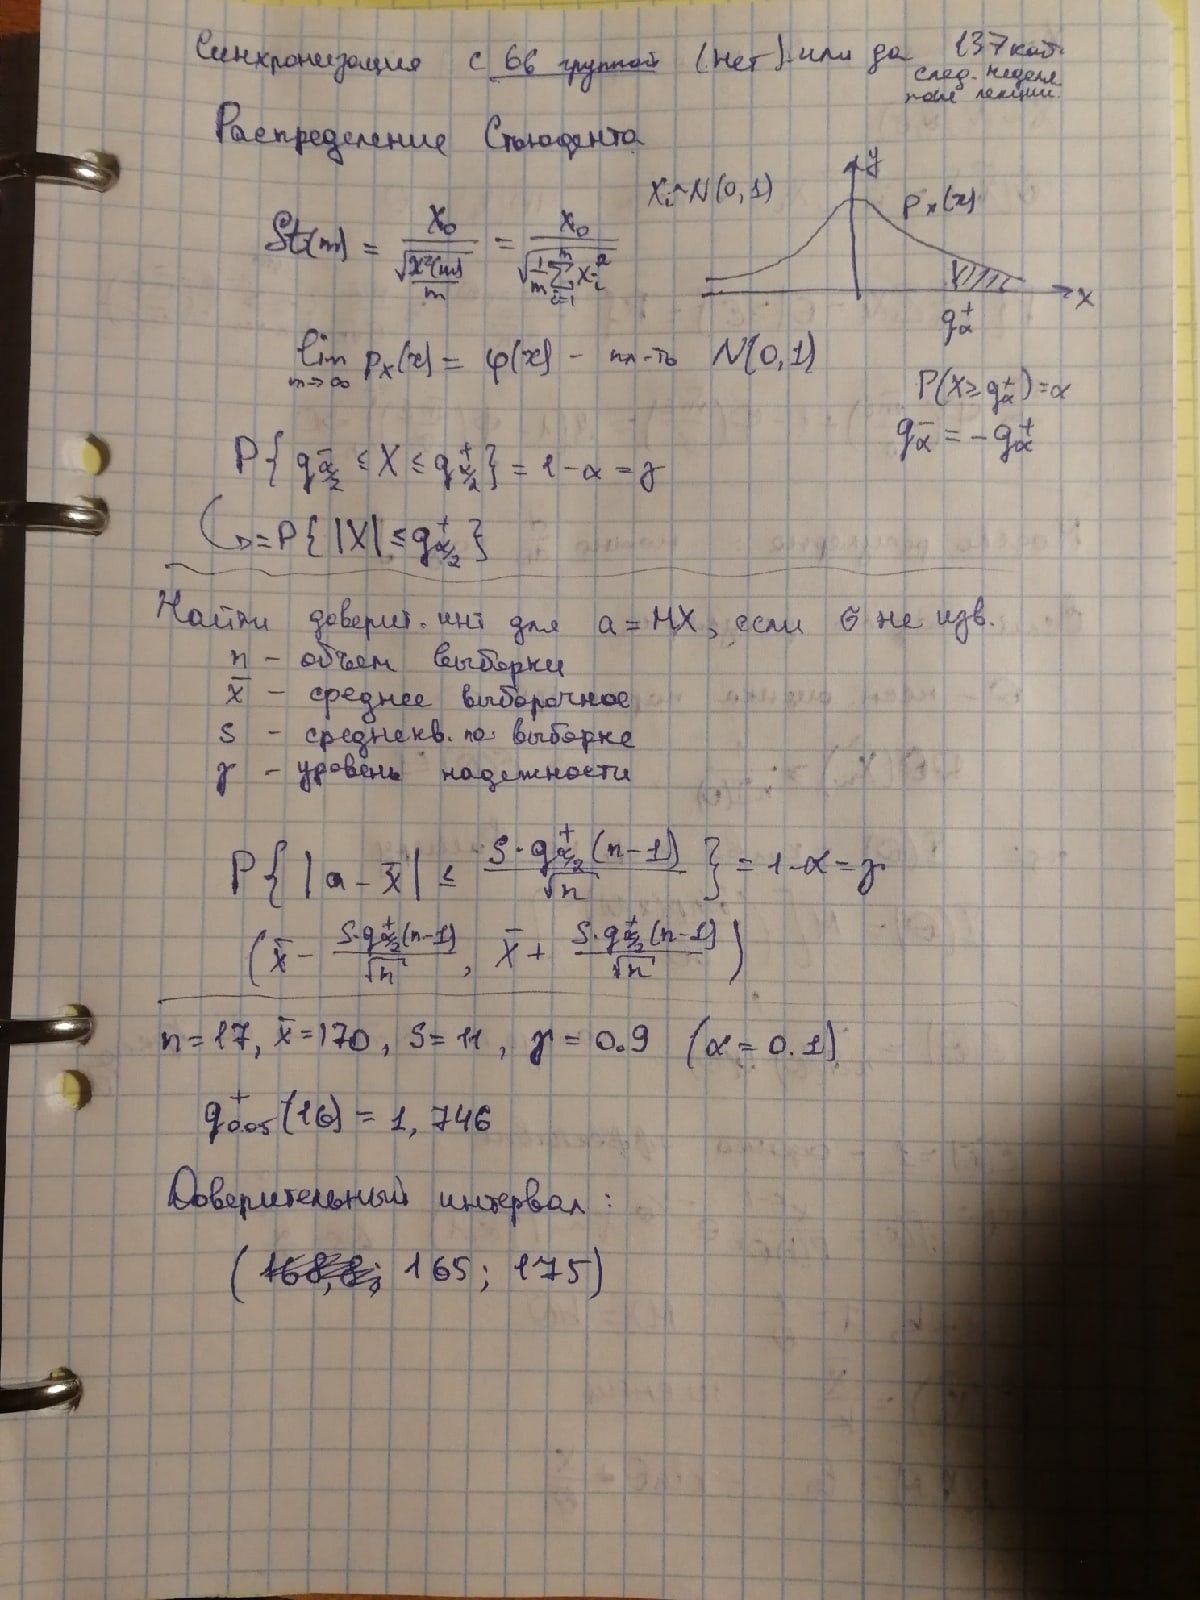 Синхронизация с 66 группой (нет) или да 137 каб.
след. неделя
после лекции
Распределение Стьюдента
St(m) = X₀ / √(χ²(m)/m) = X₀ / √(1/m ∑_{i=1}^{m} X_i²)
X_i ~ N(0,1)
y
p_x(x)
x
g⁺_α
lim_{m→∞} p_x(x) = φ(x) - пл-ть N(0,1)
P(X ≥ g⁺_α) = α
g⁻_α = -g⁺_α
P{ g⁻_{α/2} ≤ X ≤ g⁺_{α/2} } = 1-α = γ
= P{ |X| ≤ g⁺_{α/2} }
Найти доверит. инт для a = MX, если σ не изв.
n - объем выборки
x̄ - среднее выборочное
s - среднекв. по выборке
γ - уровень надежности
P{ |a - x̄| ≤ S·g⁺_{α/2}(n-1) / √n } = 1-α = γ
( x̄ - S·g⁺_{α/2}(n-1) / √n , x̄ + S·g⁺_{α/2}(n-1) / √n )
n = 17, x̄ = 170, S = 11, γ = 0.9 (α = 0.1)
g⁺_{0.05}(16) = 1,746
Доверительный интервал:
( 165; 175)